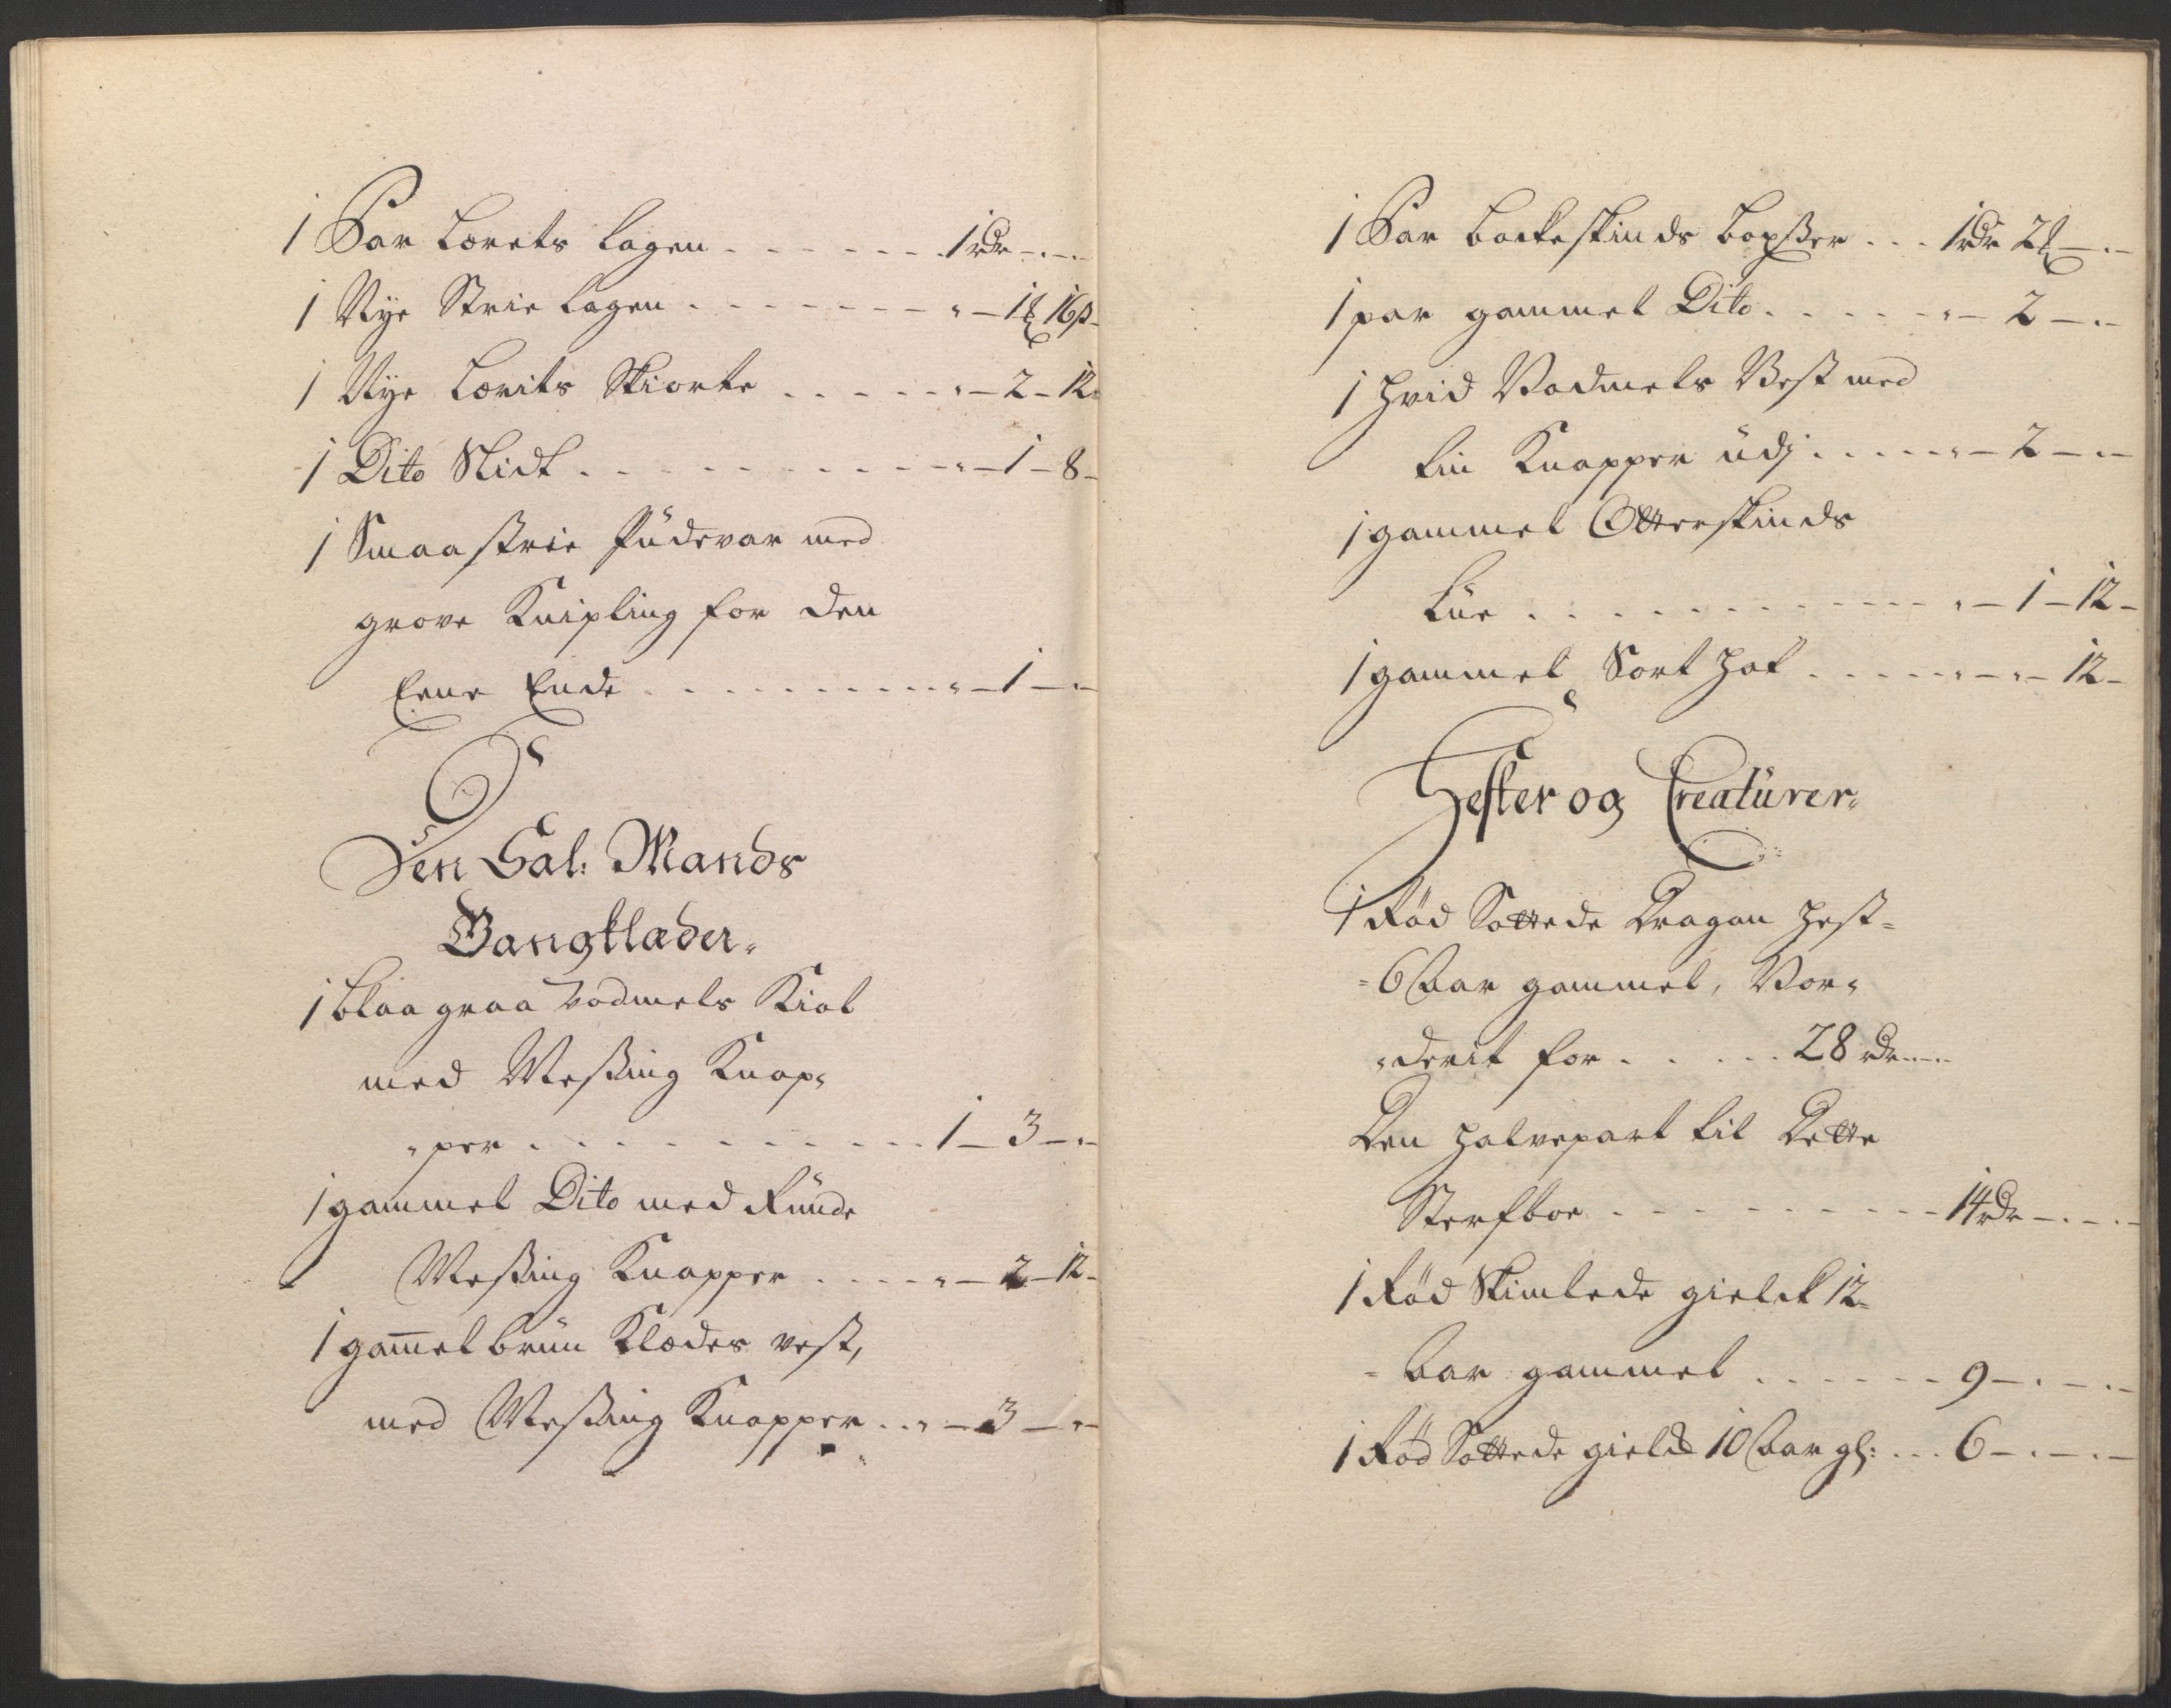 1 Par Lærets lagen . . . . . . . 1 rdr - . -
1 Nye Strie lagen . . . . . . . " - 1 16 ß -
1 Nye Lærits Skiorte . . . . . " - 2 - 12
1 Dito Slidt . . . . . . . . . . " - 1 - 8 -
1 Smaa strie Püdevar med
grove Knipling for den
Eene Ende . . . . . . . . . " - 1 - " -
Den Sal: Mands
Gangklæder.
1 blaa graa Vadmels Kiol
med Messing Knap-
per . . . . . . . . . . . 1 - 3 - " -
1 gammel Dito med Runde
Messing Knapper . . . . " - 2 - 12 -
1 gam̄el brün Klædes vest,
med Messing Knapper . . " - 3 - " -
1 Par bockeskinds boxßer . . . 1 rdr 2 - . -
1 par gammel Dito . . . . . " - 2 - . -
1 hvid Vadmels Vest med
tin Knapper üdj . . . . . " - 2 - " -
1 gammel Otterskinds
Lüe . . . . . . . . . . . " - 1 - 12 -
1 gammel Sort hat . . . . . " - " - 12 -
Hester og Creatürer.
1 Rød Sottede Dragon hest
= 6 Aar gammel, Vor-
derit for . . . . . 28 rdr - . -
Den halvepart til Dette
Sterfboe . . . . . . . . . 14 rdr - . - . -
1 Rød Skimlede gieldt 12 =
= Aar gammel . . . . . . 9 - . - . -
1 Rød Sottede gield 10 Aar gl: . . . 6 - . - . -